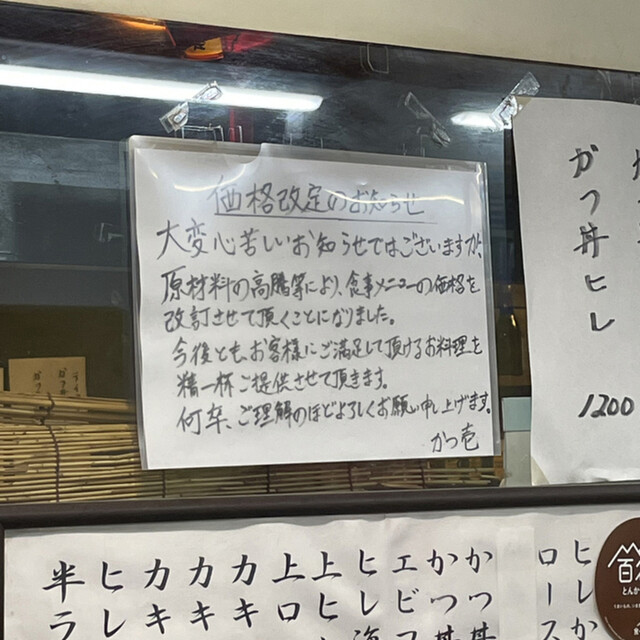 価格改定のお知らせ
大変心苦しいお知らせではございますが、
原材料の高騰等により、食事メニューの価格を
改訂させて頂くことになりました。
今後とも、お客様にご満足して頂けるお料理を
精一杯ご提供させて頂きます。
何卒、ご理解のほどよろしくお願い申し上げます。
かつ壱
かつ丼ヒレ
1200
ヒレか
ロース
かつ丼
かつ丼
エビフ
ヒレ海
上ヒレ
上ロ
カキ
カキ
カキ
ヒレ
半ラ
とんか